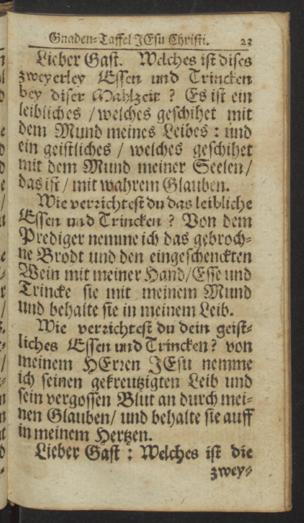 Gnaden-Taffel JEsu Christi. 23
Lieber Gast. Welches ist dises
zweyerley Essen und Trincken
bey diser Mahlzeit? Es ist ein
leibliches / welches geschihet mit
dem Mund meines Leibes: und
ein geistliches / welches geschihet
mit dem Mund meiner Seelen /
das ist / mit wahrem Glauben.
Wie verzichtest du das leibliche
Essen und Trincken? Von dem
Prediger nemme ich das gebroch-
ne Brodt und den eingeschenckten
Wein mit meiner Hand / Esse und
Trincke sie mit meinem Mund
und behalte sie in meinem Leib.
Wie verrichtest du dein geist-
liches Essen und Trincken? von
meinem HErren JEsu nemme
ich seinen gekreutzigten Leib und
sein vergossen Blut an durch mei-
nen Glauben / und behalte sie auff
in meinem Hertzen.
Lieber Gast: Welches ist die
zwey-